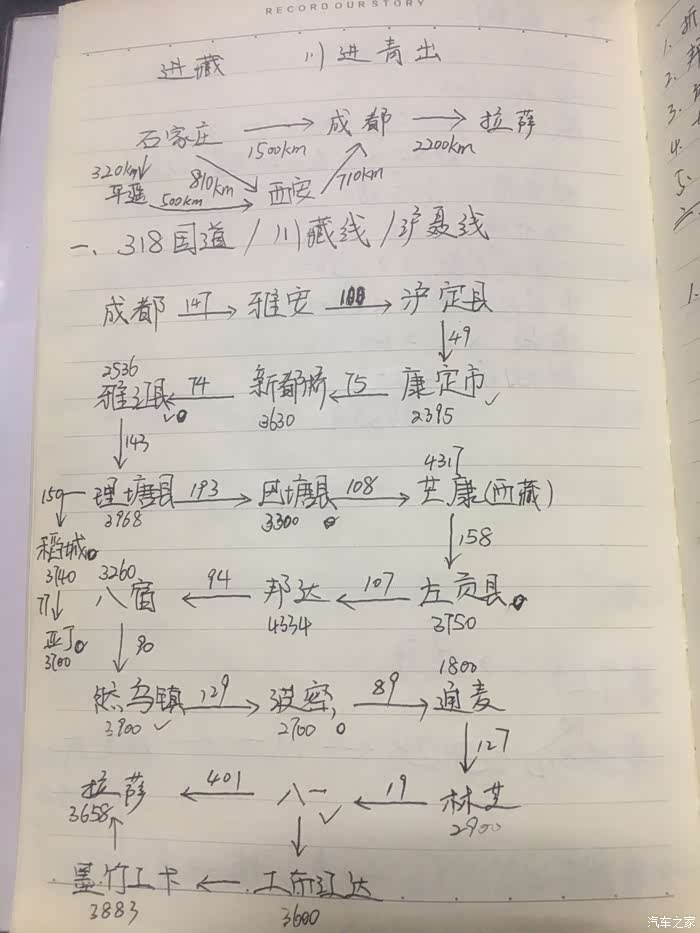 RECORD OUR STORY
进藏 川进青出
石家庄 → 成都 → 拉萨
1500km 2200km
320km 810km 710km
平遥 500km 西安
一、318国道/川藏线/沪聂线
成都 147→ 雅安 100→ 泸定县
49
2536
雅江县 ←74 新都桥 ←75 康定市
3630 2395
143
4317
150 理塘县 193→ 巴塘县 108→ 芒康(西藏)
3968 3300
158
稻城
3740 3260
77 八宿 ←94 邦达 ←107 左贡县
4334 3750
亚丁
3700
90
1800
然乌镇 129→ 波密 89→ 通麦
3900 2700
127
拉萨 ←401 八一 ←19 林芝
3658 2900
墨竹工卡 ← 工布江达
3883 3600
1.
2.
3.
4.
5.
1.
汽车之家